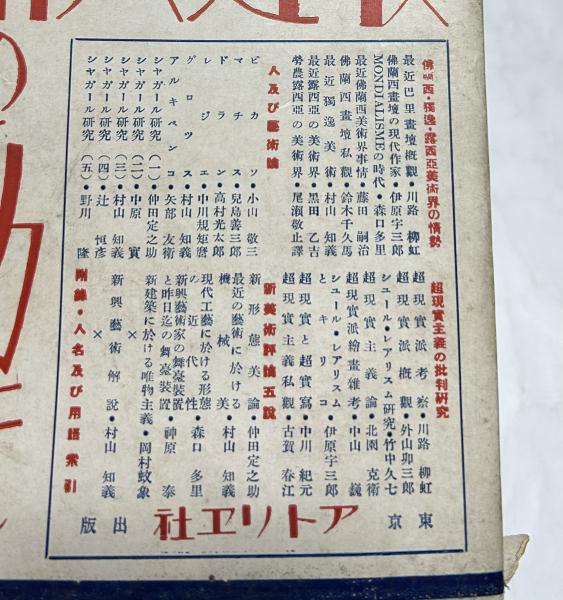 佛蘭西・獨逸・露西亞美術界の情勢
最近巴里畫壇概觀・川路柳虹
佛蘭西畫壇の現代作家・伊原宇三郎
MONDIALISMEの時代・森口多里
最近佛蘭西美術界事情・藤田嗣治
佛蘭西畫壇私觀・鈴木千久馬
最近獨逸美術・村山知義
最近露西亞の美術界・黒田乙吉
勞農露西亞の美術界・尾瀬敬止譯
人及び藝術論
ピカソ・小山敬三
マチス・兒島善三郎
ドラン・高村光太郎
レジエ・中川規矩麿
グロッス・村山知義
アルキペンコ・矢部友衛
シャガール研究(一)・仲田定之助
シャガール研究(二)・中原實
シャガール研究(三)・村山知義
シャガール研究(四)・辻恒彦
シャガール研究(五)・野川隆
超現實主義の批判研究
超現實派考察・川路柳虹
超現實派概觀・外山卯三郎
シュール・レアリスム研究・竹中久七
超現實主義論・北園克衛
超現實派繪畫雜考・中山巍
シュール・レアリスムとキリコ・伊原宇三郎
超現實と超寫實・中川紀元
超現實主義私觀・古賀春江
新美術評論五說
新形態美論・仲田定之助
最近の藝術に於ける機械美・村山知義
現代工藝に於ける形態の近代性・森口多里
新興藝術家の舞臺裝置と昨日迄の舞臺裝置・神原泰
新建築に於ける唯物主義・岡村蚊象
×
新興藝術解說・村山知義
×
附錄・人名及び用語索引
東京
アトリヱ社
出版